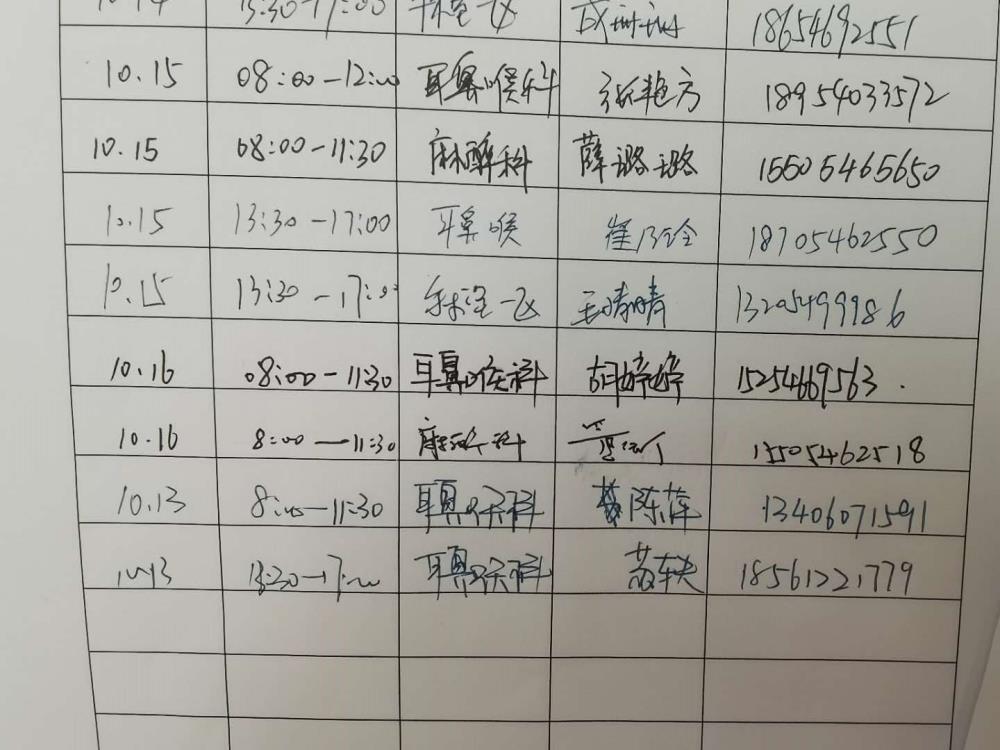 13:30-17:00 18654692551
10.15 08:00-12:00 耳鼻喉科 张艳方 18954033572
10.15 08:00-11:30 麻醉科 薛璐璐 15505465650
10.15 13:30-17:00 耳鼻喉 崔乃铨 18705462550
10.15 13:30-17:00 王晴晴 13205499986
10.16 08:00-11:30 耳鼻喉科 胡婷婷 15254669563.
10.16 8:00-11:30 15505462518
10.13 8:00-11:30 耳鼻喉科 陈萍 13406071591
10.13 13:30-17:00 耳鼻喉科 18561221779